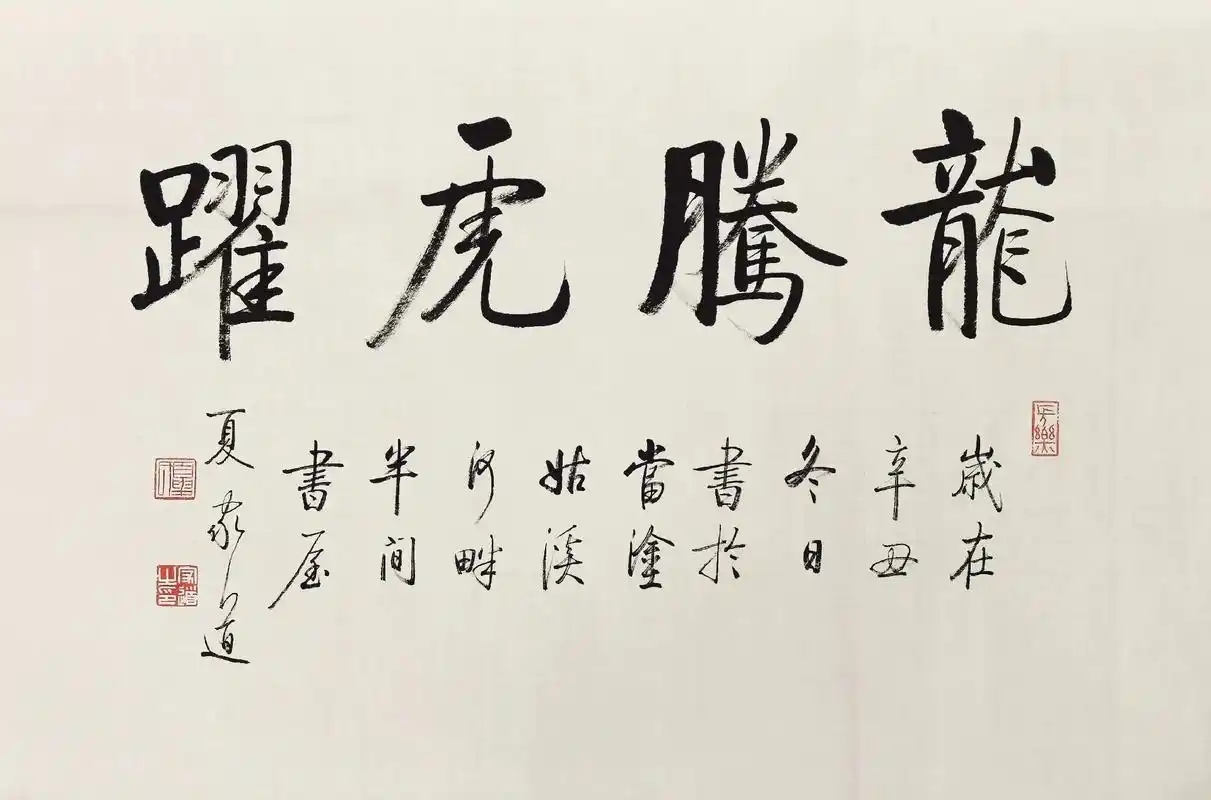 龍騰虎躍
歲在
辛丑
冬日
書於
當塗
姑溪
河畔
半间
書屋
夏家道
長樂